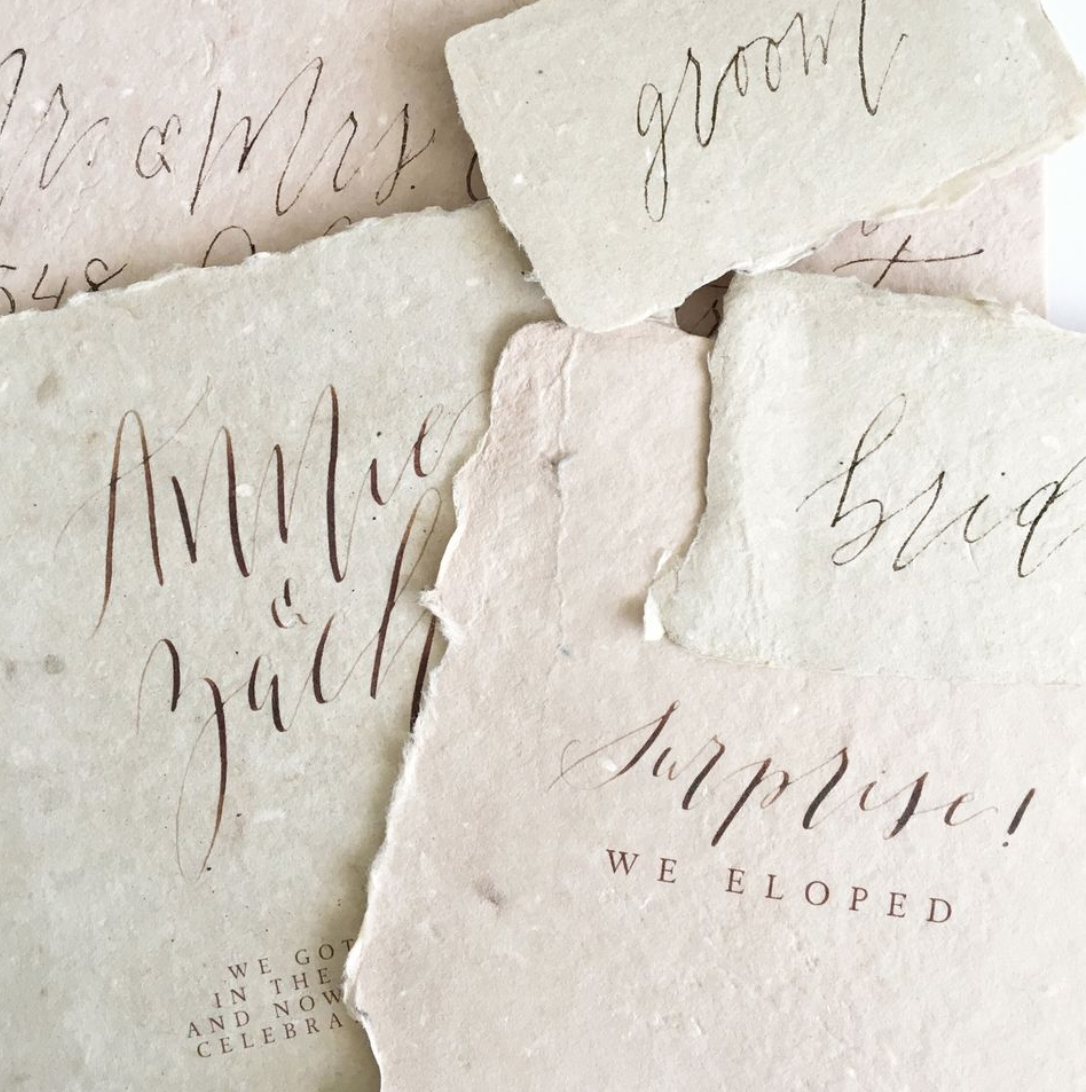 groom
Mr. & Mrs.
548
Annie
&
Zach
brid
Surprise!
WE ELOPED
WE GOT
IN THE
AND NOW
CELEBRA